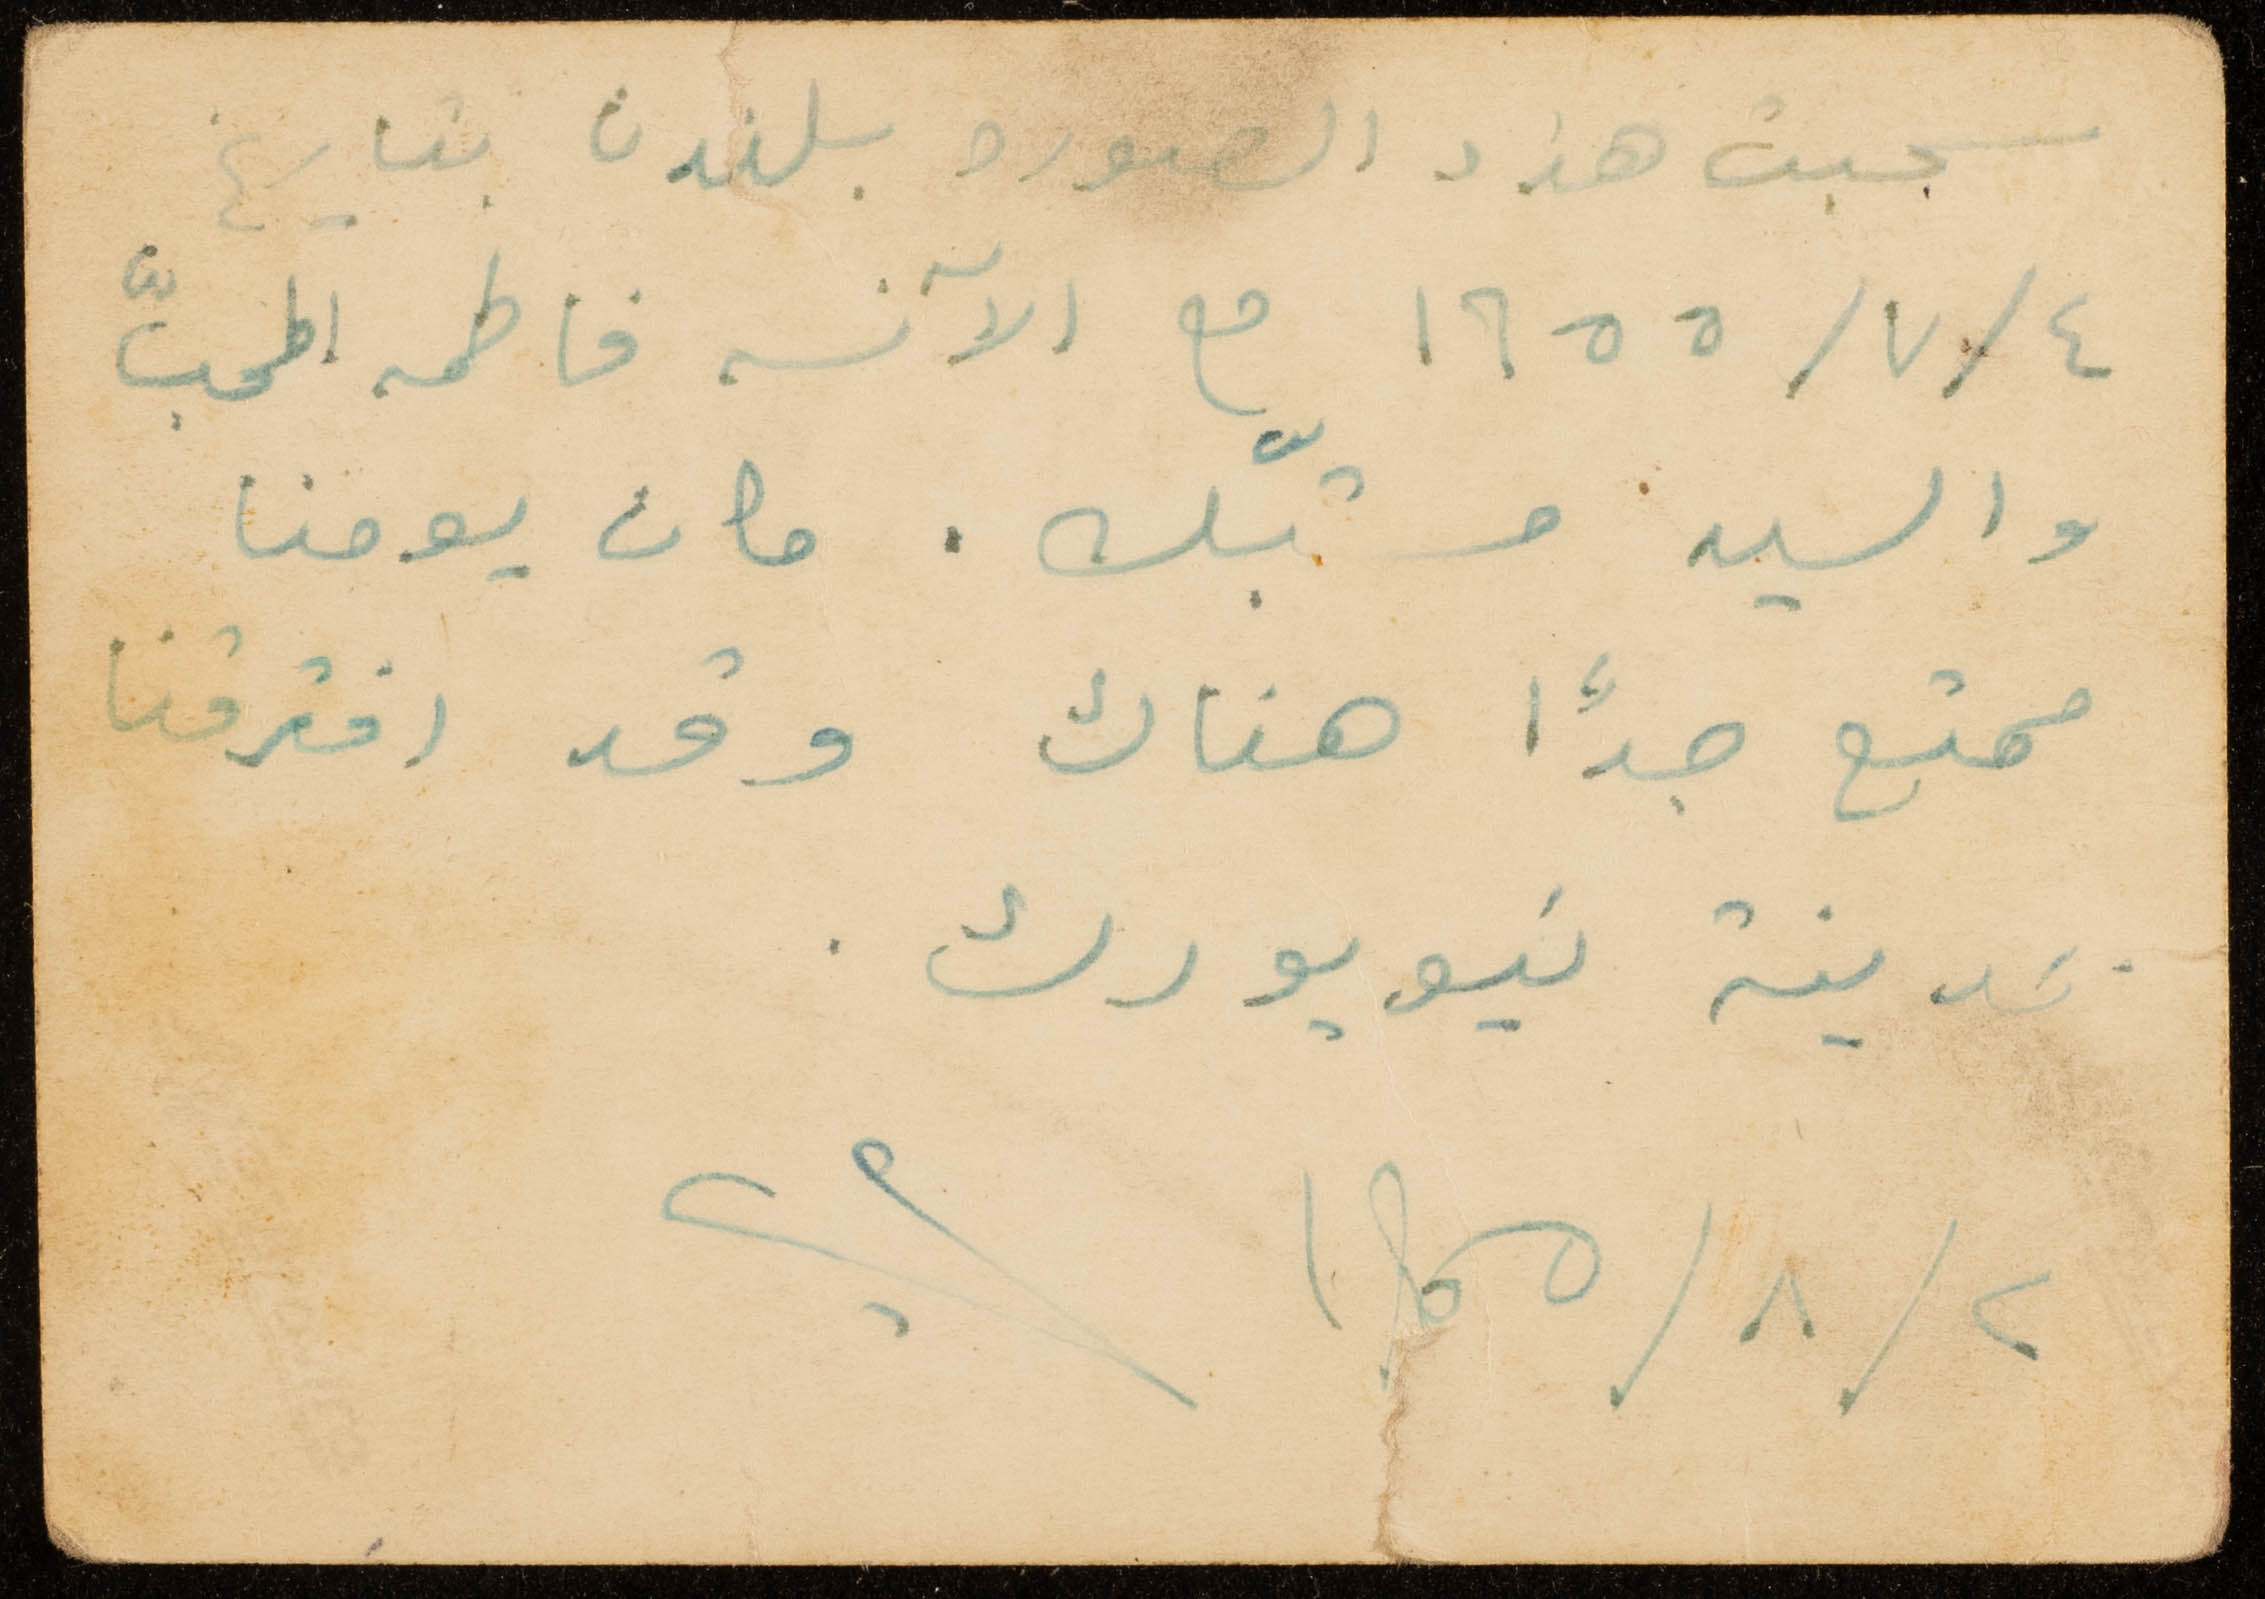 سحبت هذه الصوره بلندن بتاريخ
٤/٧/١٩٥٥ مع الآنسه فاطمه المحبّ
والسيد مشبّك. كان يومنا
ممتع جدًا هناك وقد افترقنا
بمدينة نيويورك.
٢/٨/١٩٥٥